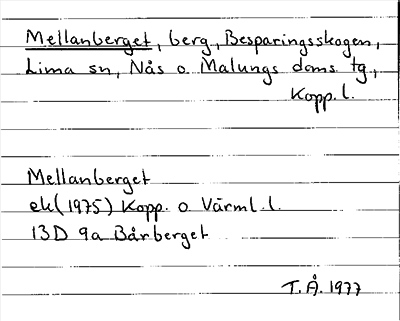 Mellanberget, berg, Besparingsskogen,
Lima sn, Nås o Malungs doms tg,
Kopp. l.
Mellanberget
ek (1975) Kopp. o Värml. l.
13D 9a Bårberget
T.Å. 1977